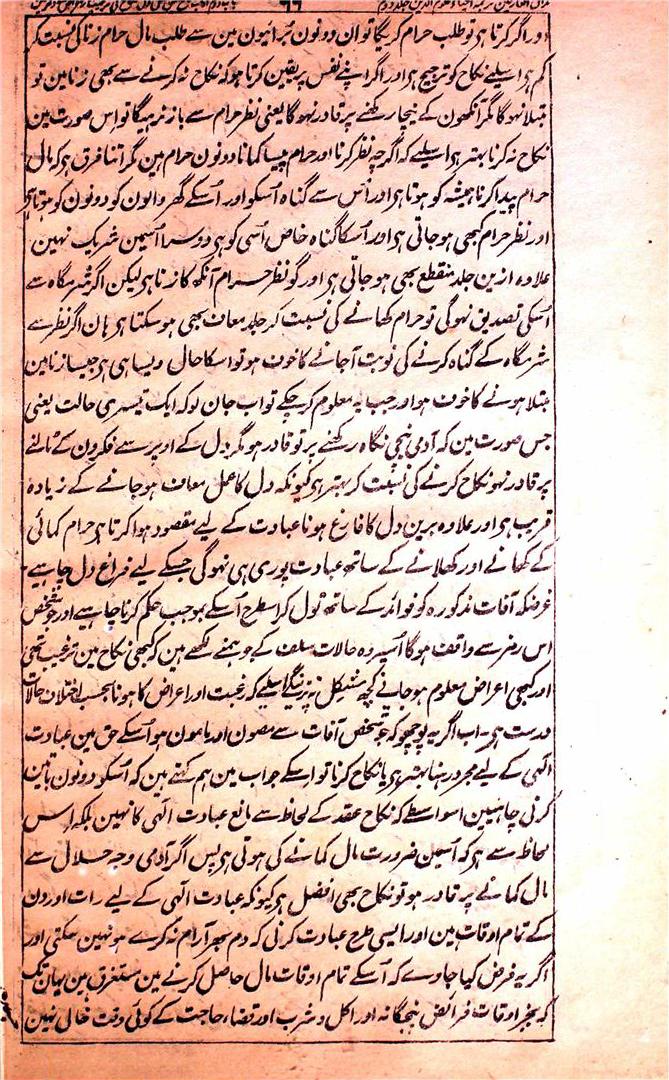 اور اگر کرتا ہی تو طلب حرام کریگا تو ان دونون برائیون مین سے طلب مال حرام زنا کی نسبت کر
کم ہی اسلیے نکاح کو ترجیح ہی اور اگر اپنے نفس پر یقین کرتا ہو کہ نکاح نہ کرنے سے بھی زنا مین تو
مبتلا نہوگا مگر آنکھون کے نیچا رکھنے پر قادر نہوگا یعنی نظر حرام سے باز نرہیگا تو اس صورت مین
نکاح نہ کرنا بہتر ہی اسلیے کہ اگرچہ نظر کرنا اور حرام پیسا کمانا دونون حرام ہین مگر اتنا فرق ہی کہ مال
حرام پیدا کرنا ہمیشہ کو ہوتا ہی اور اس سے گناہ اسکو اور اسکے گھر والون کو دونون کو ہوتا ہی
اور نظر حرام کبھی ہو جاتی ہی اور اسکا گناہ خاص اسی کو ہی دوسرا اسمین شریک نہین
علاوہ ازین جلد منقطع بھی ہو جاتی ہی اور گو نظر حرام آنکھ کا زنا ہی لیکن اگر شرمگاہ سے
اسکی تصدیق نہوگی تو حرام کھانے کی نسبت کر جلد معاف بھی ہو سکتا ہی ہان اگر نظر سے
شرمگاہ کے گناہ کرنے کی نوبت آجانے کا خوف ہو تو اسکا حال ویسا ہی ہی جیسا زنا مین
مبتلا ہونے کا خوف ہو اور جب یہ معلوم کر چکے تو اب جان لو کہ ایک تیسری حالت یعنی
جس صورت مین کہ آدمی نیچی نگاہ رکھنے پر تو قادر ہو مگر دل کے اوپر سے فکرون کے ٹالنے
پر قادر نہو نکاح کرنے کی نسبت کر بہتر ہی کیونکہ دل کا عمل معاف ہو جانے کے زیادہ
قریب ہی اور علاوہ برین دل کا فارغ ہونا عبادت کے لیے مقصود ہوا کرتا ہی حرام کمائی
کے کھانے اور کھلانے کے ساتھ عبادت پوری ہی نہوگی جسکے لیے فراغ دل چاہیے
غرضکہ آفات مذکورہ کو فوائد کے ساتھ تول کر اسطرح اسکے بموجب حکم کرنا چاہیے اور جو شخص
اس رمز سے واقف ہوگا اسپر وہ حالات سلف کے جو ہمنے لکھے ہین کہ کبھی نکاح مین ترغیب تھی
اور کبھی اعراض معلوم ہو جانے کچھ مشکل نہ پڑینگے اسلیے کہ رغبت اور اعراض کا ہونا بحسب اختلاف حالات
درست ہی۔ اب اگر یہ پوچھو کہ جو شخص آفات سے مصون اور مامون ہو اسکے حق مین عبادت
الٰہی کے لیے مجرد رہنا بہتر ہی یا نکاح کرنا تو اسکے جواب مین ہم کہتے ہین کہ اسکو دونون باتین
کرنی چاہئین اسواسطے کہ نکاح عقد کے لحاظ سے مانع عبادت الٰہی کا نہین بلکہ اس
لحاظ سے ہی کہ اسمین ضرورت مال کمانے کی ہوتی ہی پس اگر آدمی وجہ حلال سے
مال کمانے پر قادر ہو تو نکاح بھی افضل ہی کیونکہ عبادت الٰہی کے لیے رات اور دن
کے تمام اوقات ہین اور ایسی طرح عبادت کرنی کہ دم بھر آرام نہ کرے ہو نہین سکتی اور
اگر یہ فرض کیا جاوے کہ اسکے تمام اوقات مال حاصل کرنے مین مستغرق ہین یہان تک
کہ بجز اوقات فرائض پنجگانہ اور اکل و شرب اور قضاء حاجت کے کوئی وقت خالی نہین